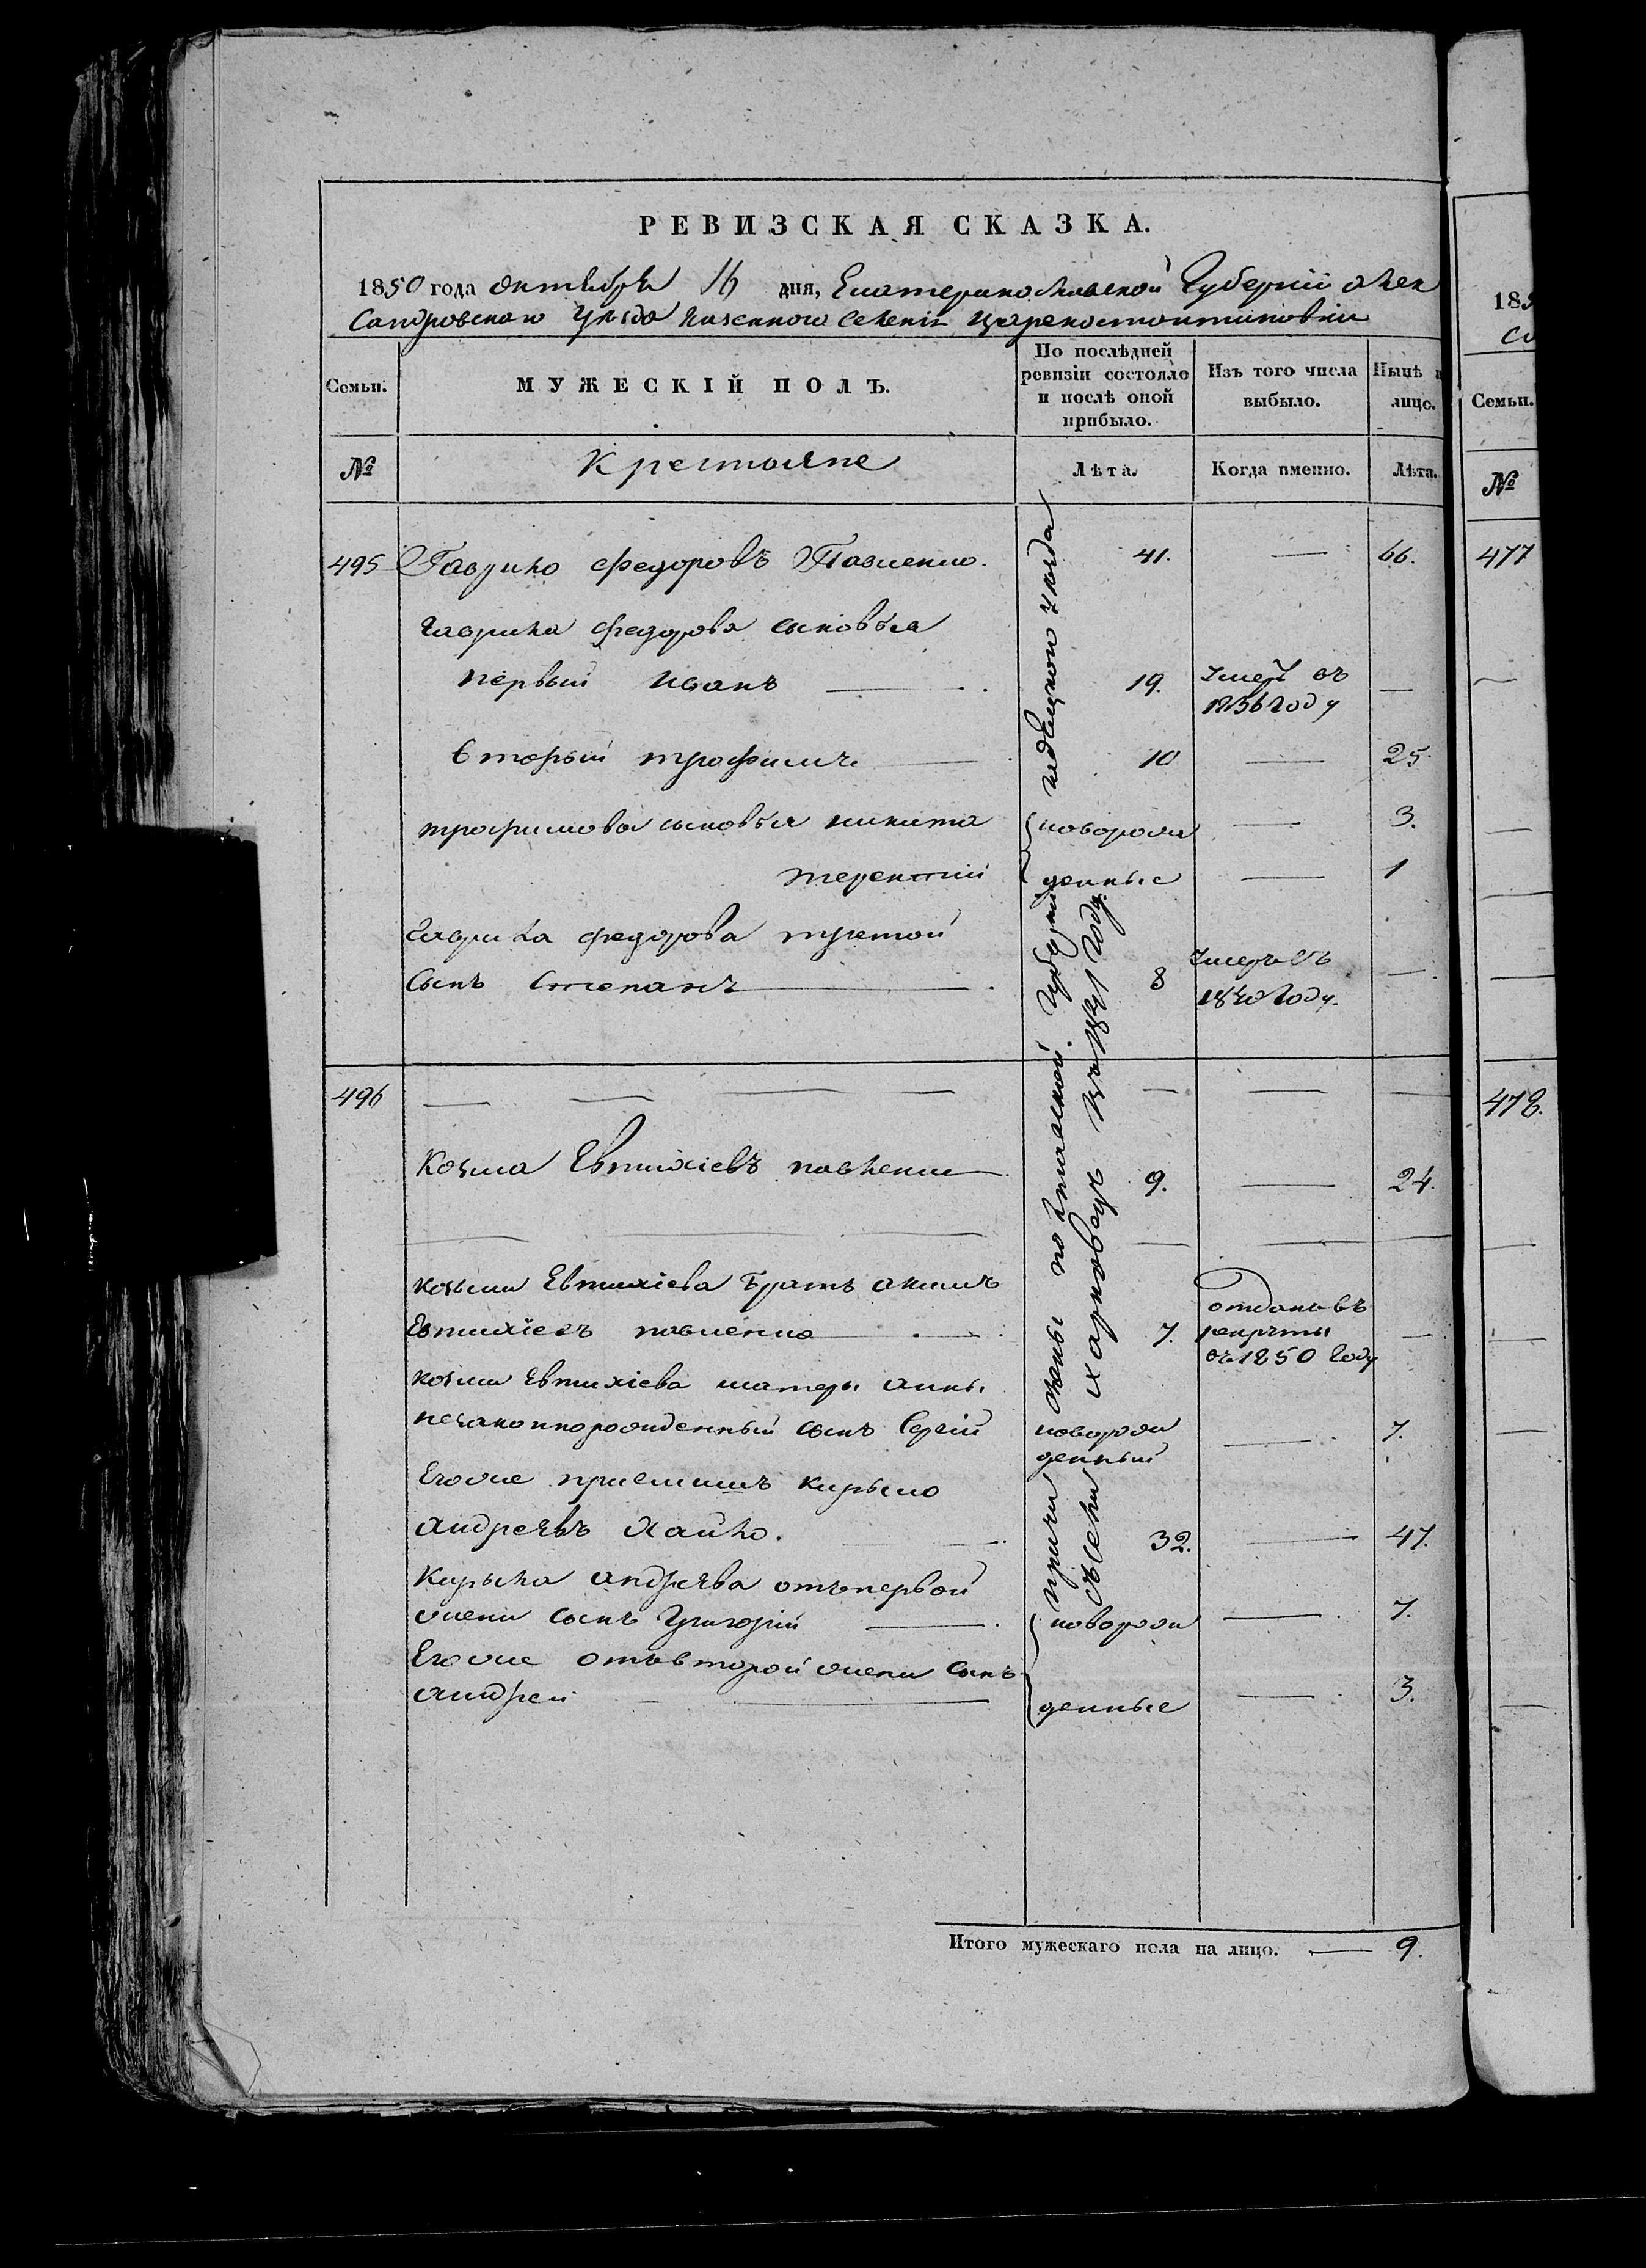 РЕВИЗСКАЯ СКАЗКА.
1850 года октября 16 дня, Екатеринославской Губернiи Алек
сандровскаго Уезда казенного Селенiя Цареконстантиновки
Семьи.
МУЖЕСКІЙ ПОЛЪ.
По послѣдней ревизіи состояло и послѣ оной прибыло.
Изъ того числа выбыло.
Нынѣ на лицо.
№
Крестьяне
Лѣта.
Когда именно.
Лѣта.
495 Гаврило Федоровъ Павленко. 41. — 66.
Гаврила Федорова сыновья
первый Иванъ — 19. Умеръ въ 1836 году —
второй Трофимъ — 10 — 25.
Трофимова сыновья Никита новорож — 3.
Терентий денные — 1
Гаврила Федорова третой
Сынъ Степанъ — 8 Умеръ въ 1840 году. —
496 — — — — — — —
Козма Евтихiевъ Павленко 9. — 24.
Козьми Евтихiева Братъ Акимъ
Евтихiевъ Павленко 7. отданъ въ рекруты въ 1850 году —
Козми Евтихiева матери Анны
незаконнорожденный сынъ Сергiй новорож денный — 7.
Егоже приемышъ Кирыло
Андреевъ Хайло. 32. — 47.
Кирыла Андреева отъ первой
жены сынъ Григорiй — новорож — 7.
Егоже отъ второй жены сынъ
Андрей — денные — 3.
причи слены по Полтавской Губернiи
Харковець 1841 году
уезда
Итого мужескаго пола на лицо. — 9.
185
477
478.
Семьи.
№